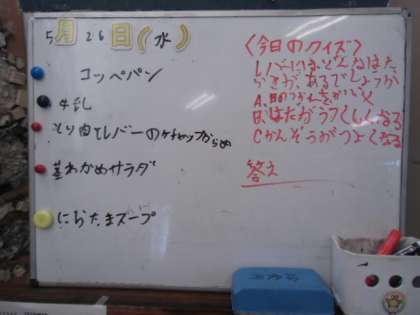 5月26日(水)
コッペパン
牛乳
とり肉とレバーのケチャップがらめ
茎わかめサラダ
にらたまスープ
〈今日のクイズ〉
レバーにはどんなはた
らきが、あるでしょうか
A.目のつかれをかいふく
B.はだがうつくしくなる
Cかんぞうがつよくなる
答え